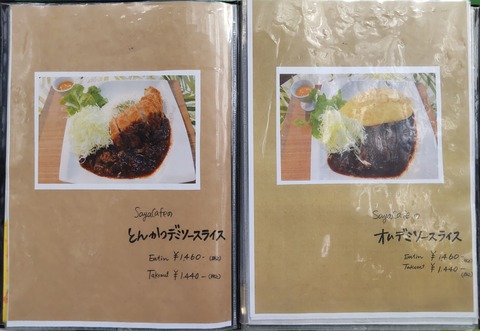 SoyaCafeの
とんかつデミソースライス
Eatin ¥1,460- (税込)
Takeout ¥1,440- (税込)
SoyaCafeの
オムデミソースライス
Eatin ¥1,460- (税込)
Takeout ¥1,440- (税込)